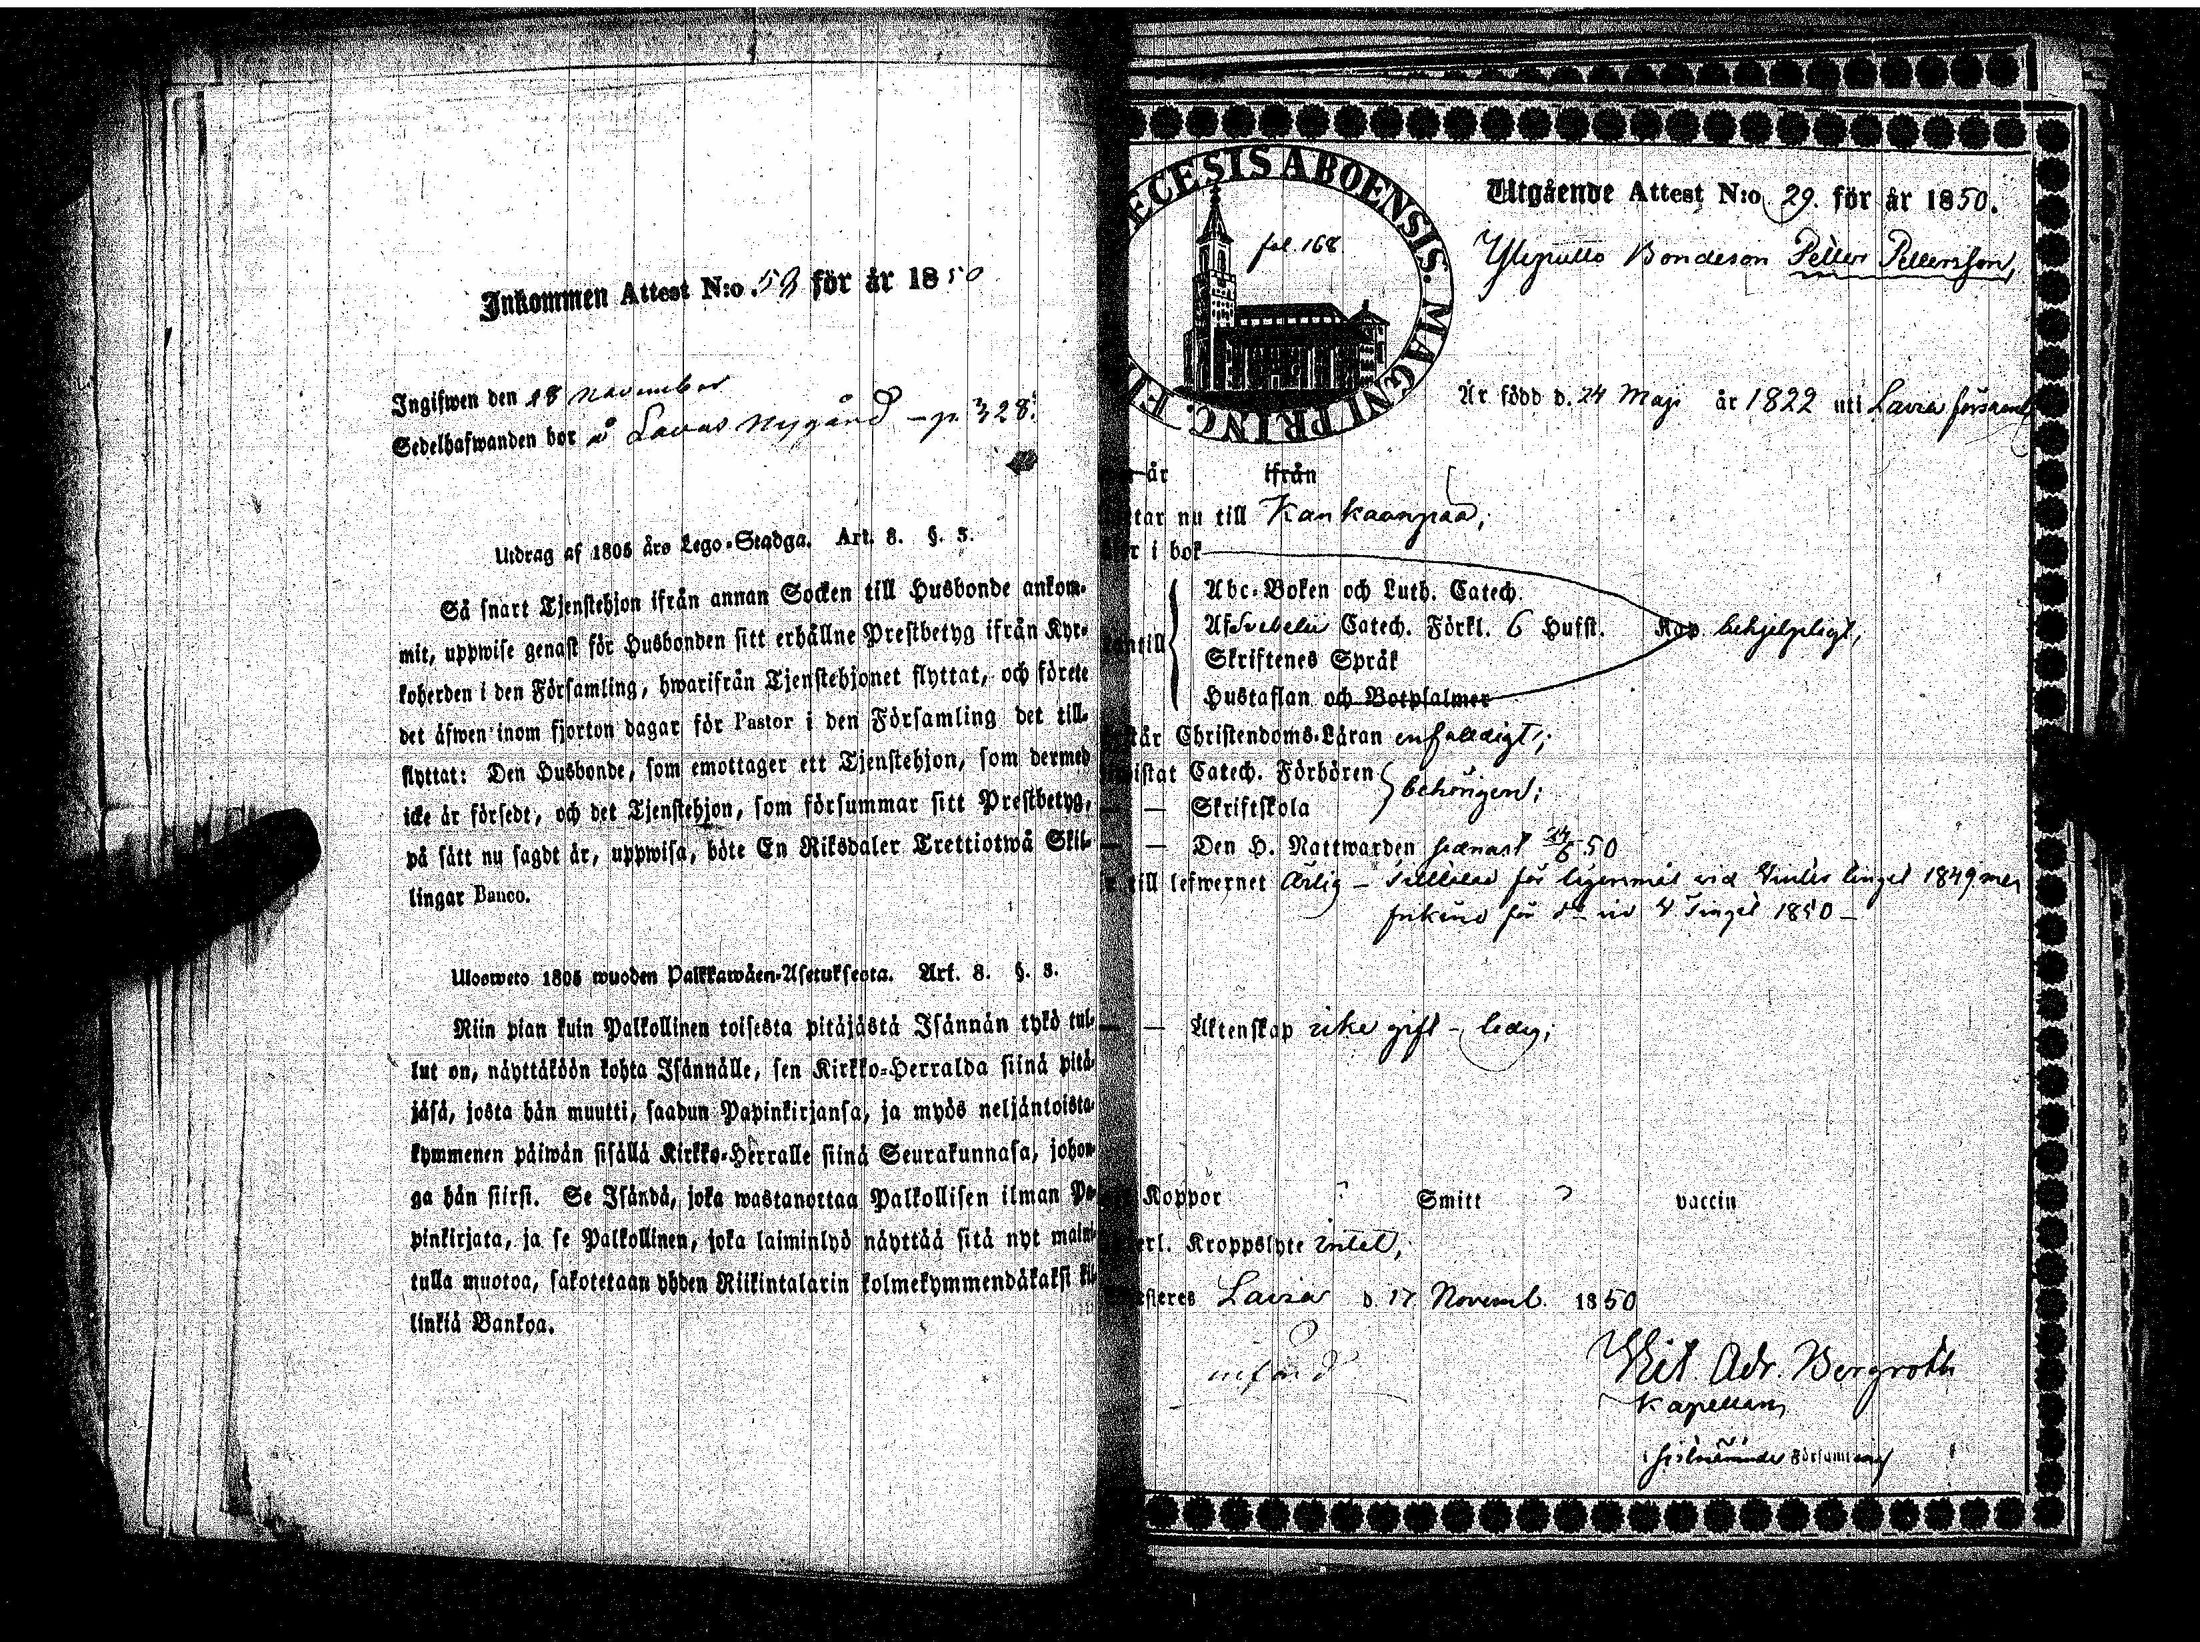 Inkommen Attest N:o 58 för år 1850
Ingifwen den 18 November
Sedelhafwanden bor å Lavas Nygård – p. 328.
Utdrag af 1805 års Lego-Stadga. Art. 8. §. 3.
Så snart Tjenstehjon ifrån annan Socken till Husbonde ankom-
mit, uppwise genast för Husbonden sitt erhållne Prestbetyg ifrån Kyr-
koherden i den Församling, hwarifrån Tjenstehjonet flyttat, och förete
det äfwen inom fjorton dagar för Pastor i den Församling det till-
flyttat: Den Husbonde, som emottager ett Tjenstehjon, som dermed
icke är försedt, och det Tjenstehjon, som försummar sitt Prestbetyg,
på sätt nu sagdt är, uppwisa, böte En Riksdaler Trettiotwå Skil-
lingar Banco.
Ulosweto 1805 wuoden Palkkawäen-Asetuksesta. Art. 8. §. 3.
Niin pian kuin Palkollinen toisesta pitäjästä Isännän tykö tul-
lut on, näyttäköön kohta Isännälle, sen Kirkko-Herralda siinä pitä-
jäsä, josta hän muutti, saadun Papinkirjansa, ja myös neljäntoista-
kymmenen päiwän sisällä Kirkko-Herralle siinä Seurakunnasa, johon-
ga hän siirsi. Se Isändä, joka wastanottaa Palkollisen ilman Pa-
pinkirjata, ja se Palkollinen, joka laiminlyö näyttää sitä nyt maini-
tulla muotoa, sakotetaan yhden Riikintalarin kolmekymmendäkaksi kil-
linkiä Bankoa.
ECESIS ABOENSIS. MAGNI PRINC. F
fol. 168
Utgående Attest N:o 29. för år 1850.
Bondeson Petter Pettersson,
Är född d. 24 Maji år 1822 uti Lavia församl
år ifrån
tar nu till Kankaanpää,
r i bok
Abc-Boken och Luth. Catech.
Af Svebelii Catech. Förkl. 6 Hufst. Kap. behjelpligt,
antill Skriftenes Språk
Hustaflan och Botpsalmer
tår Christendoms-Läran enfaldigt;
istat Catech. Förhören behörigen;
— — Skriftskola
— — Den H. Nattwarden senast 50
till lefwernet Ärlig – för lägersmål vid Vinter tinget 1849 men
för do vid V. Tinget 1850 –
— — Äktenskap icke gift – ledig;
Koppor ? Smitt ? vaccin
erl. Kroppslyte intet,
steres Lavia d. 17 Novemb. 1850
införd
Vit. Adr. Bergroth
Kapellan,
i församling